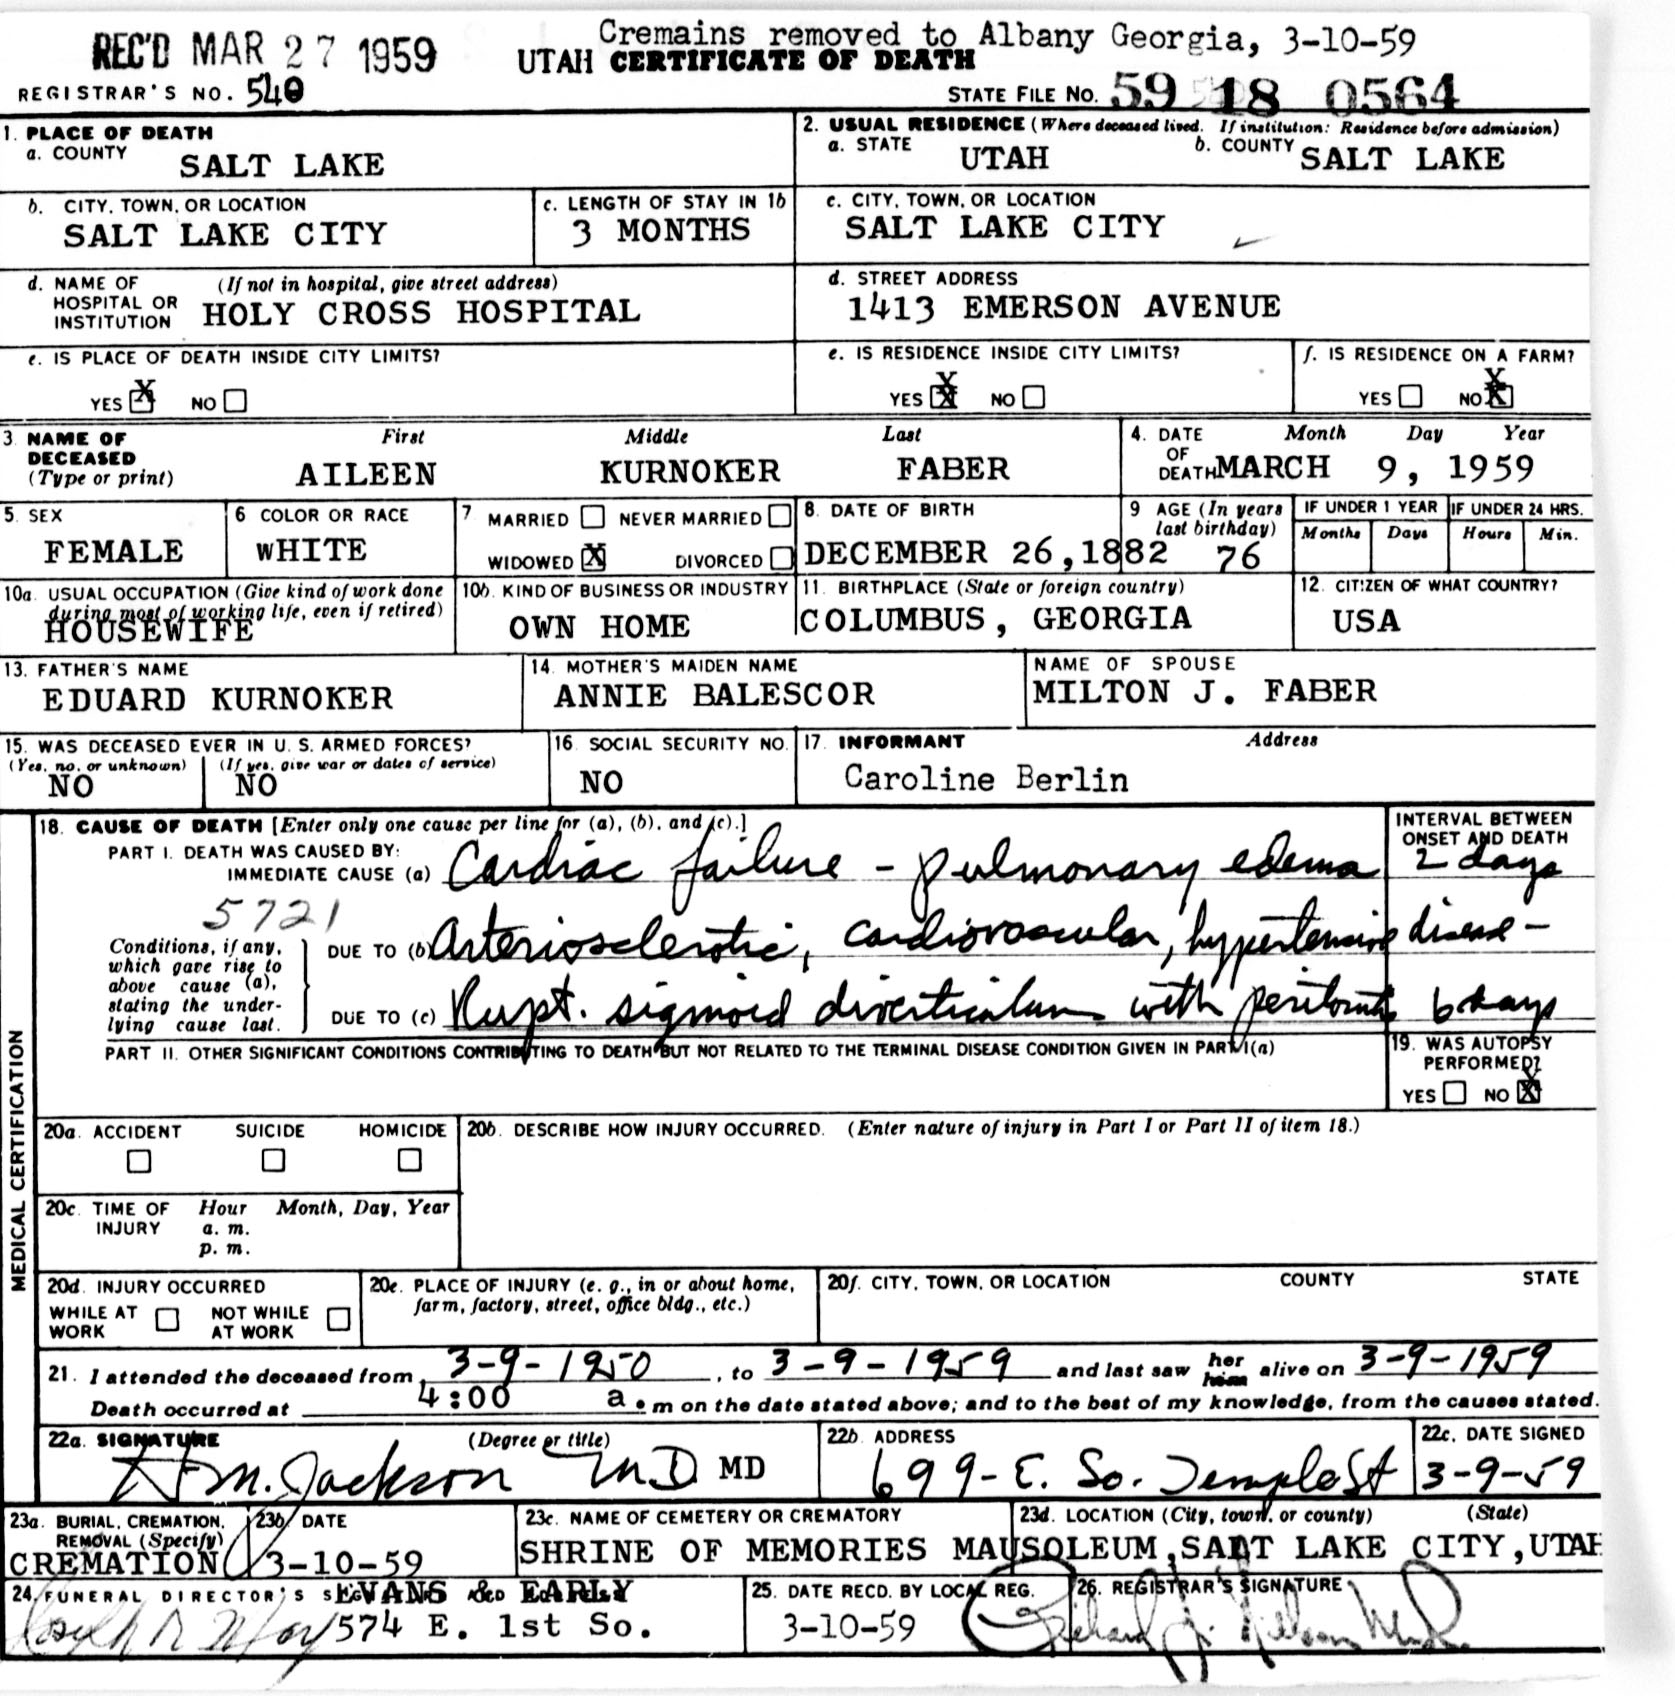 Cremains removed to Albany Georgia, 3-10-59
REC'D MAR 27 1959
UTAH CERTIFICATE OF DEATH
REGISTRAR'S NO. 540
STATE FILE No. 59 18 0564
1. PLACE OF DEATH
a. COUNTY SALT LAKE
2. USUAL RESIDENCE (Where deceased lived. If institution: Residence before admission)
a. STATE UTAH b. COUNTY SALT LAKE
b. CITY, TOWN, OR LOCATION
SALT LAKE CITY
c. LENGTH OF STAY IN 1b
3 MONTHS
c. CITY, TOWN, OR LOCATION
SALT LAKE CITY
d. NAME OF HOSPITAL OR INSTITUTION (If not in hospital, give street address)
HOLY CROSS HOSPITAL
d. STREET ADDRESS
1413 EMERSON AVENUE
e. IS PLACE OF DEATH INSIDE CITY LIMITS?
YES X NO
e. IS RESIDENCE INSIDE CITY LIMITS?
YES X NO
f. IS RESIDENCE ON A FARM?
YES NO X
3. NAME OF DECEASED (Type or print)
First Middle Last
AILEEN KURNOKER FABER
4. DATE OF DEATH Month Day Year
MARCH 9, 1959
5. SEX
FEMALE
6 COLOR OR RACE
WHITE
7 MARRIED NEVER MARRIED
WIDOWED X DIVORCED
8. DATE OF BIRTH
DECEMBER 26,1882
9 AGE (In years last birthday)
76
IF UNDER 1 YEAR
Months Days
IF UNDER 24 HRS.
Hours Min.
10a. USUAL OCCUPATION (Give kind of work done during most of working life, even if retired)
HOUSEWIFE
10b. KIND OF BUSINESS OR INDUSTRY
OWN HOME
11. BIRTHPLACE (State or foreign country)
COLUMBUS, GEORGIA
12. CITIZEN OF WHAT COUNTRY?
USA
13. FATHER'S NAME
EDUARD KURNOKER
14. MOTHER'S MAIDEN NAME
ANNIE BALESCOR
NAME OF SPOUSE
MILTON J. FABER
15. WAS DECEASED EVER IN U. S. ARMED FORCES?
(Yes, no, or unknown) (If yes, give war or dates of service)
NO NO
16. SOCIAL SECURITY NO.
NO
17. INFORMANT Address
Caroline Berlin
MEDICAL CERTIFICATION
18. CAUSE OF DEATH [Enter only one cause per line for (a), (b), and (c).]
INTERVAL BETWEEN ONSET AND DEATH
PART I. DEATH WAS CAUSED BY:
IMMEDIATE CAUSE (a) Cardiac failure - pulmonary edema 2 days
5721
Conditions, if any, which gave rise to above cause (a), stating the underlying cause last.
DUE TO (b) Arteriosclerotic, cardiovascular, hypertensive disease -
DUE TO (c) Rupt. sigmoid diverticulum with peritonitis 6 days
PART II. OTHER SIGNIFICANT CONDITIONS CONTRIBUTING TO DEATH BUT NOT RELATED TO THE TERMINAL DISEASE CONDITION GIVEN IN PART I(a)
19. WAS AUTOPSY PERFORMED?
YES NO X
20a. ACCIDENT SUICIDE HOMICIDE
20b. DESCRIBE HOW INJURY OCCURRED. (Enter nature of injury in Part I or Part II of item 18.)
20c. TIME OF INJURY Hour Month, Day, Year
a. m.
p. m.
20d. INJURY OCCURRED
WHILE AT WORK NOT WHILE AT WORK
20e. PLACE OF INJURY (e. g., in or about home, farm, factory, street, office bldg., etc.)
20f. CITY, TOWN, OR LOCATION COUNTY STATE
21. I attended the deceased from 3-9-1950, to 3-9-1959 and last saw her him alive on 3-9-1959
Death occurred at 4:00 a.m on the date stated above; and to the best of my knowledge, from the causes stated.
22a. SIGNATURE (Degree or title)
M. Jackson M.D. MD
22b. ADDRESS
699-E. So. Temple St
22c. DATE SIGNED
3-9-59
23a. BURIAL, CREMATION, REMOVAL (Specify)
CREMATION
23b. DATE
3-10-59
23c. NAME OF CEMETERY OR CREMATORY
23d. LOCATION (City, town, or county) (State)
SHRINE OF MEMORIES MAUSOLEUM, SALT LAKE CITY, UTAH
24. FUNERAL DIRECTOR'S
EVANS & EARLY
574 E. 1st So.
25. DATE RECD. BY LOCAL REG.
3-10-59
26. REGISTRAR'S SIGNATURE